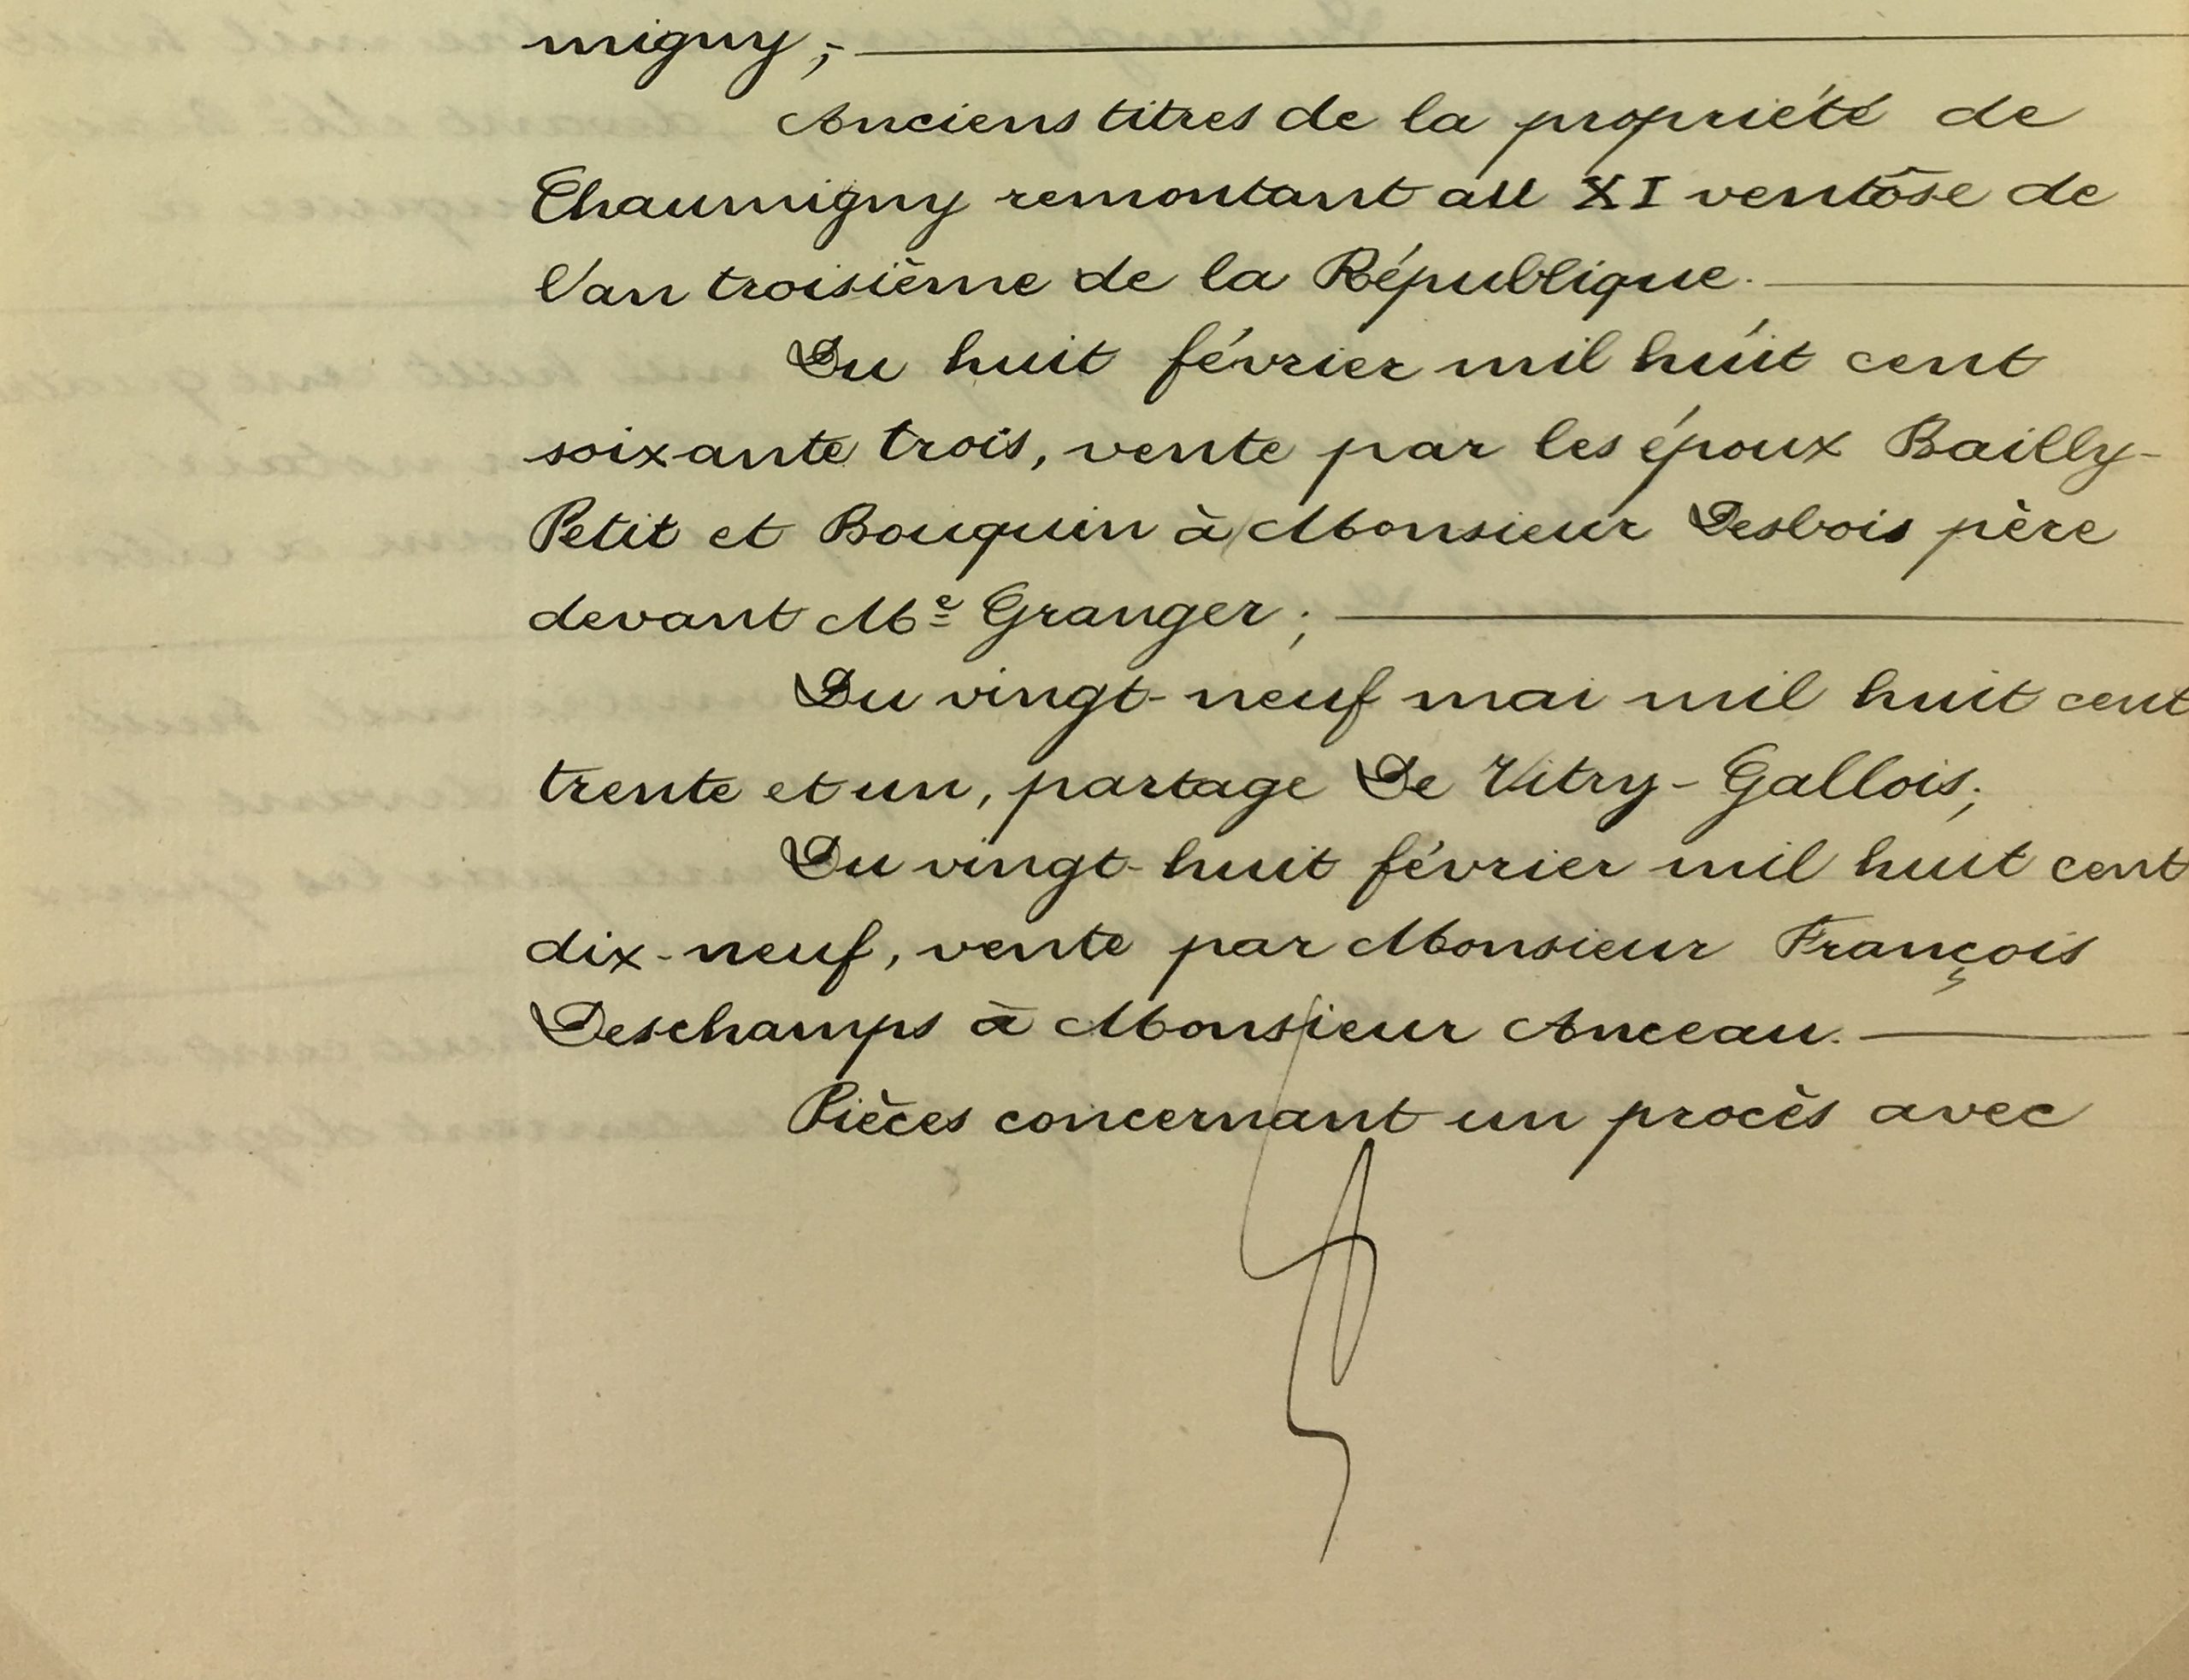 migny ;
Anciens titres de la propriété de
Chaumigny remontant au XI ventôse de
l'an troisième de la République.
Du huit février mil huit cent
soixante trois, vente par les époux Bailly-
Petit et Bouquin à Monsieur Desbois père
devant Me Granger ;
Du vingt-neuf mai mil huit cent
trente et un, partage De Vitry - Gallois ;
Du vingt-huit février mil huit cent
dix-neuf, vente par Monsieur François
Deschamps à Monsieur Anceau.
Pièces concernant un procès avec